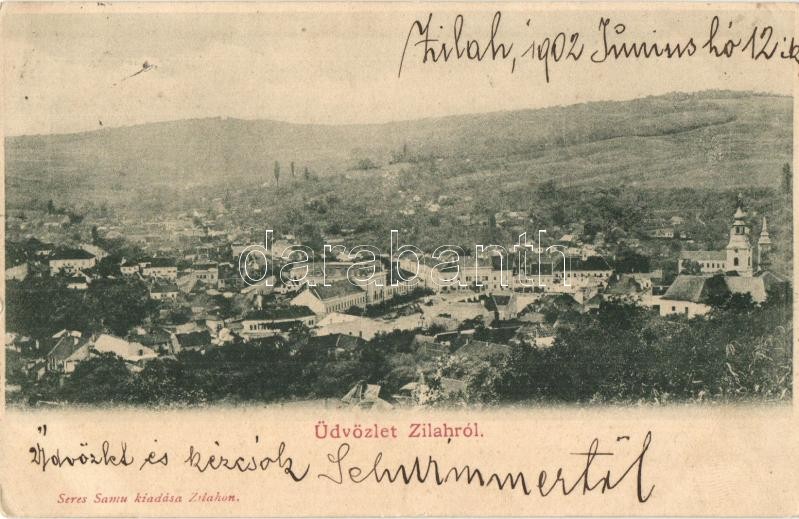 Zilah, 1902 Június hó 12.ik
darabanth
Üdvözlet Zilahról.
Üdvözlet és kézcsók Schurimmertől
Seres Samu kiadása Zilahon.